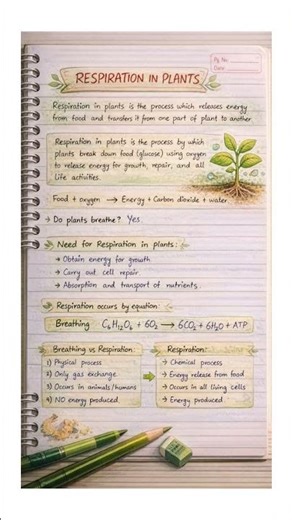 Pg No:
Date:
RESPIRATION IN PLANTS
Respiration in plants is the process which releases energy
from food and transfers it from one part of plant to another.
Respiration in plants is the process by which
plants break down food (glucose) using oxygen
to release energy for growth, repair, and all
life activities.
Food + oxygen → Energy + Carbon dioxide + water
→ Do plants breathe? Yes.
Need for Respiration in plants:
→ Obtain energy for growth.
→ Carry out cell repair.
→ Absorption and transport of nutrients.
Respiration occurs by equation:
Breathing C₆H₁₂O₆ + 6O₂ → 6CO₂ + 6H₂O + ATP
Breathing vs Respiration:
1) Physical process
2) Only gas exchange
3) Occurs in animals/humans
4) NO energy produced
Respiration:
→ Chemical process
→ Energy release from food
→ Occurs in all living cells
→ Energy produced.